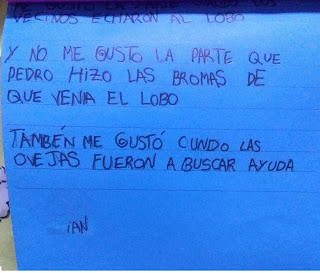 VECINOS ECHARON AL LOBO
Y NO ME GUSTO LA PARTE QUE
PEDRO HIZO LAS BROMAS DE
QUE VENIA EL LOBO
TAMBÉN ME GUSTÓ CUNDO LAS
OVEJAS FUERON A BUSCAR AYUDA
IAN